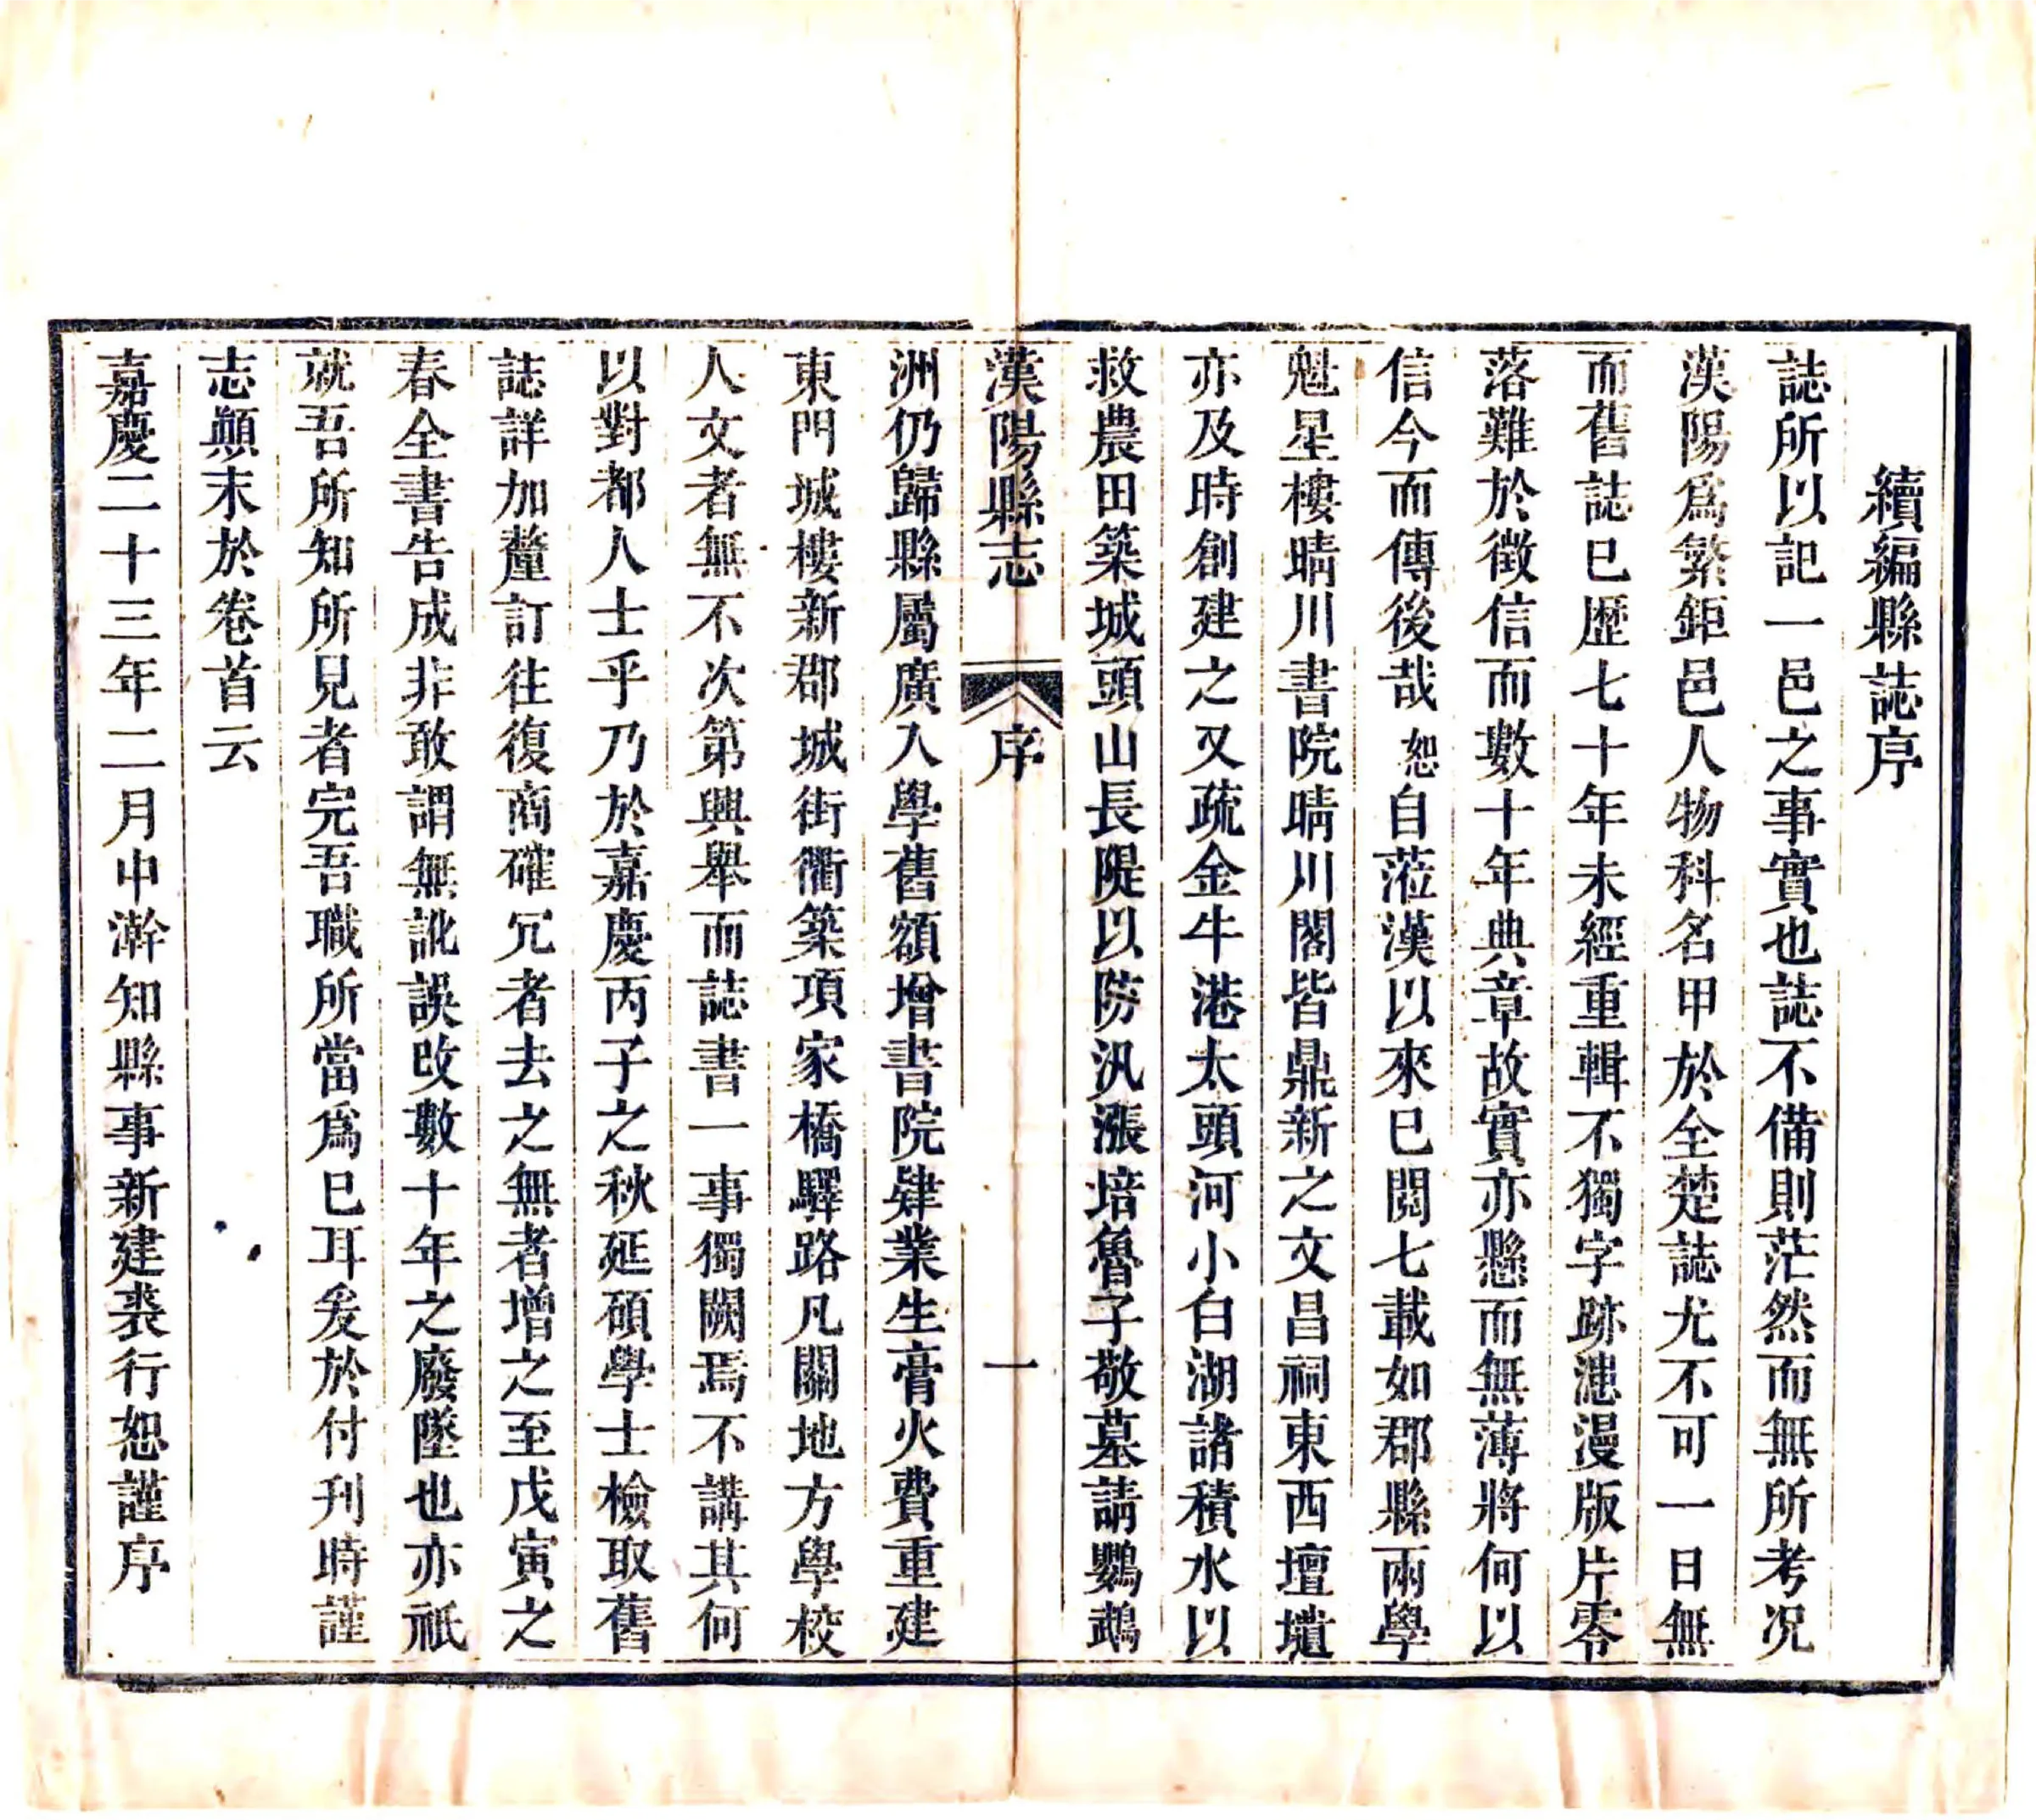 續編縣誌序
誌所以記一邑之事實也誌不備則茫然而無所考况
漢陽爲繁鉅邑人物科名甲於全楚誌尤不可一日無
而舊誌已歷七十年未經重輯不獨字跡漶漫版片零
落難於徵信而數十年典章故實亦懸而無薄將何以
信今而傳後哉恕自蒞漢以來已閱七載如郡縣兩學
魁星樓晴川書院晴川閣皆鼎新之文昌祠東西壇壝
亦及時創建之又疏金牛港太頭河小白湖諸積水以
救農田築城頭山長隄以防汎漲培魯子敬墓請鸚鵡
漢陽縣志 序 一
洲仍歸縣屬廣入學舊額增書院肄業生膏火費重建
東門城樓新郡城街衢築項家橋驛路凡關地方學校
人文者無不次第興舉而誌書一事獨闕焉不講其何
以對都人士乎乃於嘉慶丙子之秋延碩學士檢取舊
誌詳加釐訂往復商確冗者去之無者增之至戊寅之
春全書告成非敢謂無訛誤改數十年之廢墜也亦祇
就吾所知所見者完吾職所當爲已耳爰於付刊時謹
志顚末於卷首云
嘉慶二十三年二月中澣知縣事新建裘行恕謹序